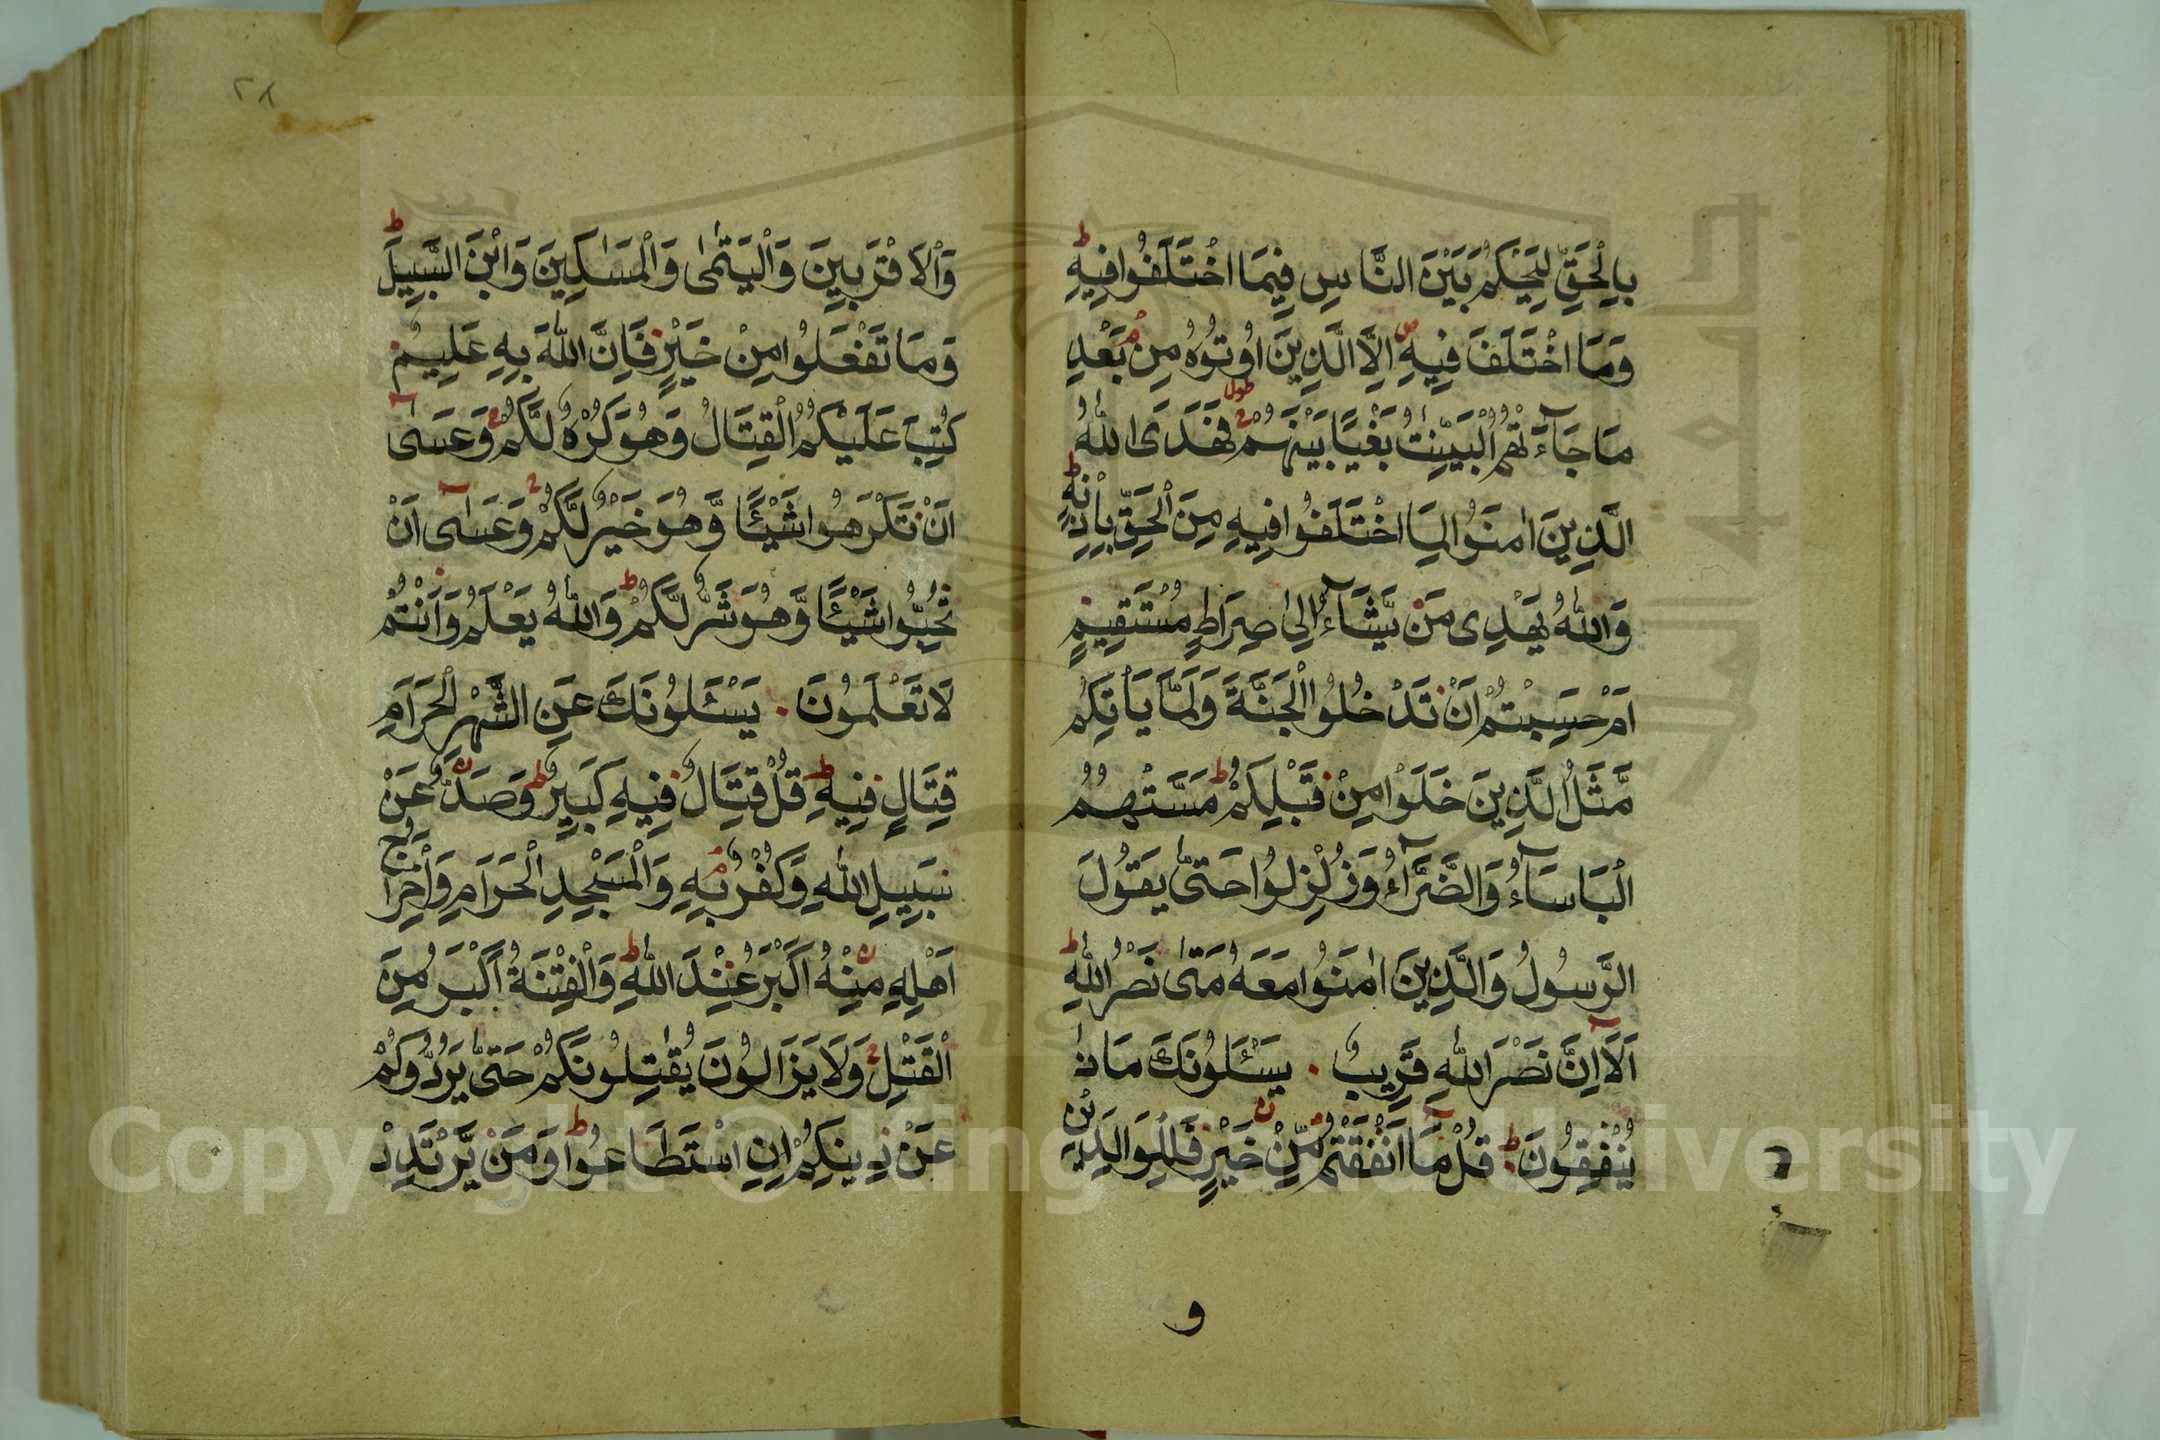 بِالْحَقِّ لِيَحْكُمَ بَيْنَ النَّاسِ فِيمَا اخْتَلَفُوا فِيهِ ط
وَمَا اخْتَلَفَ فِيهِ اِلَّا الَّذِينَ اُوتُوهُ مِنْ بَعْدِ
مَا جَآءَتْهُمُ الْبَيِّنٰتُ بَغْيًا بَيْنَهُمْ فَهَدَى اللّٰهُ
الَّذِينَ اٰمَنُوا لِمَا اخْتَلَفُوا فِيهِ مِنَ الْحَقِّ بِاِذْنِهٖ ط
وَاللّٰهُ يَهْدِى مَنْ يَّشَآءُ اِلىٰ صِرَاطٍ مُسْتَقِيمٍ
اَمْ حَسِبْتُمْ اَنْ تَدْخُلُوا الْجَنَّةَ وَلَمَّا يَأْتِكُمْ
مَّثَلُ الَّذِينَ خَلَوْا مِنْ قَبْلِكُمْ ط مَسَّتْهُمُ
الْبَاسَآءُ وَالضَّرَّآءُ وَزُلْزِلُوا حَتّٰى يَقُولَ
الرَّسُولُ وَالَّذِينَ اٰمَنُوا مَعَهُ مَتىٰ نَصْرُ اللّٰهِ ط
اَلَآ اِنَّ نَصْرَ اللّٰهِ قَرِيبٌ . يَسْـَٔلُونَكَ مَاذَا
يُنْفِقُونَ ط قُلْ مَآ اَنْفَقْتُمْ مِّنْ خَيْرٍ فَلِلْوَالِدَيْنِ
و
٢٨
وَالْاَقْرَبِينَ وَالْيَتٰمىٰ وَالْمَسٰكِينَ وَابْنَ السَّبِيلِ ط
وَمَا تَفْعَلُوا مِنْ خَيْرٍ فَاِنَّ اللّٰهَ بِهِ عَلِيمٌ
كُتِبَ عَلَيْكُمُ الْقِتَالُ وَهُوَ كُرْهٌ لَّكُمْ وَعَسىٰ
اَنْ تَكْرَهُوا شَيْـًٔا وَّهُوَ خَيْرٌ لَّكُمْ وَعَسىٰ اَنْ
تُحِبُّوا شَيْـًٔا وَّهُوَ شَرٌّ لَّكُمْ ط وَاللّٰهُ يَعْلَمُ وَاَنْتُمْ
لَا تَعْلَمُونَ . يَسْـَٔلُونَكَ عَنِ الشَّهْرِ الْحَرَامِ
قِتَالٍ فِيهِ ط قُلْ قِتَالٌ فِيهِ كَبِيرٌ ط وَصَدٌّ عَنْ
سَبِيلِ اللّٰهِ وَكُفْرٌ بِهِ وَالْمَسْجِدِ الْحَرَامِ وَاِخْرَاجُ
اَهْلِهِ مِنْهُ اَكْبَرُ عِنْدَ اللّٰهِ ط وَالْفِتْنَةُ اَكْبَرُ مِنَ
الْقَتْلِ وَلَا يَزَالُونَ يُقٰتِلُونَكُمْ حَتّٰى يَرُدُّوكُمْ
عَنْ دِينِكُمْ اِنِ اسْتَطَاعُوا ط وَمَنْ يَّرْتَدِدْ
Copyright © King Saud University
1957